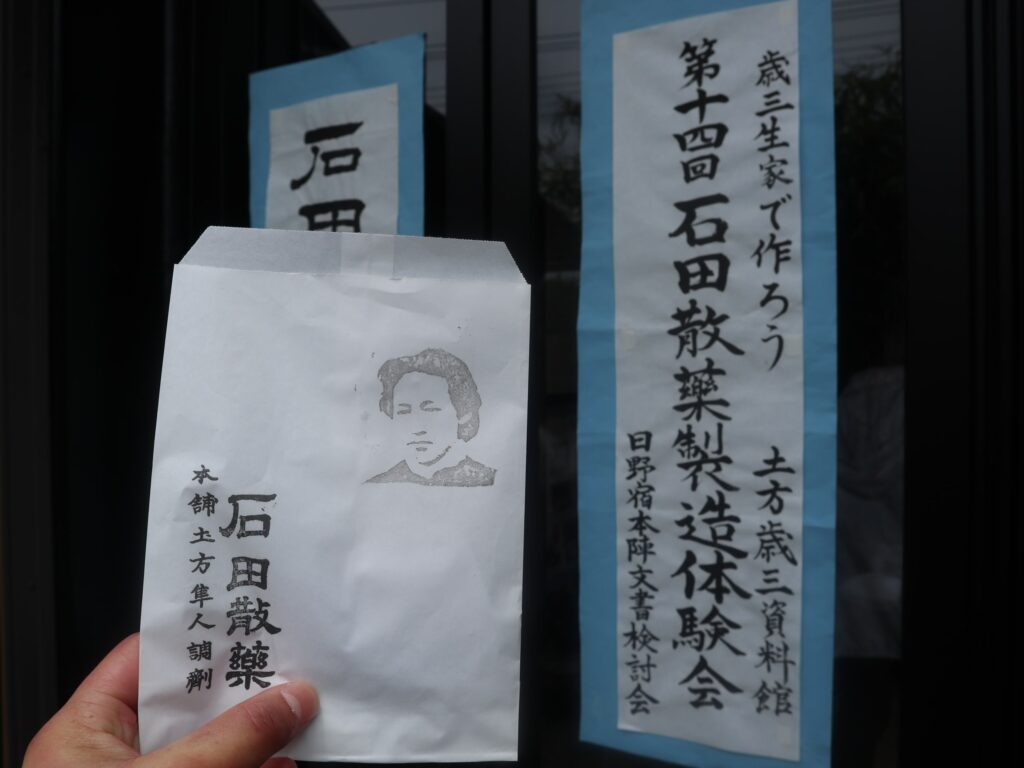 歳三生家で作ろう 土方歳三資料館
第十四回石田散薬製造体験会
日野宿本陣文書検討会
石田
石田散藥
本舗土方隼人調劑